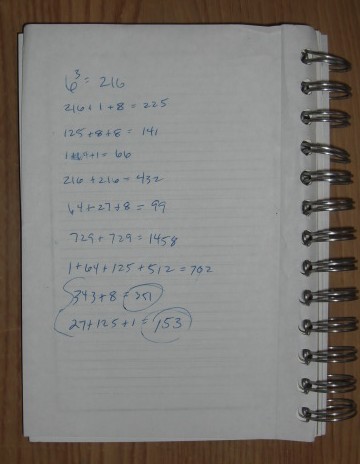 6³ = 216
216+1+8 = 225
125+8+8 = 141
1+64+1 = 66
216+216 = 432
64+27+8 = 99
729+729 = 1458
1+64+125+512 = 702
343+8 = 351
27+125+1 = 153